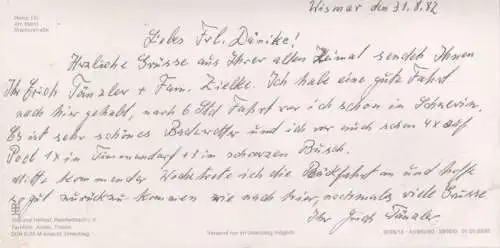 Wismar den 31.8.82
Liebes Frl. Dänike!
Herzliche Grüsse aus Ihrer alten Heimat sendet Ihnen
Ihr Erich Tänzler + Fam. Zielke. Ich habe eine gute Fahrt
nach hier gehabt, nach 6 Std Fahrt war ich schon in Schwerin.
Es ist sehr schönes Badewetter und ich war auch schon 4x auf
Poel 1x in Timmendorf +3 im schwarzen Busch.
Mitte kommender Woche trete ich die Rückfahrt an und hoffe
so gut zurück zu kommen wie nach hier, nochmals viele Grüsse
Ihr Erich Tänzler
Versand nur im Umschlag möglich